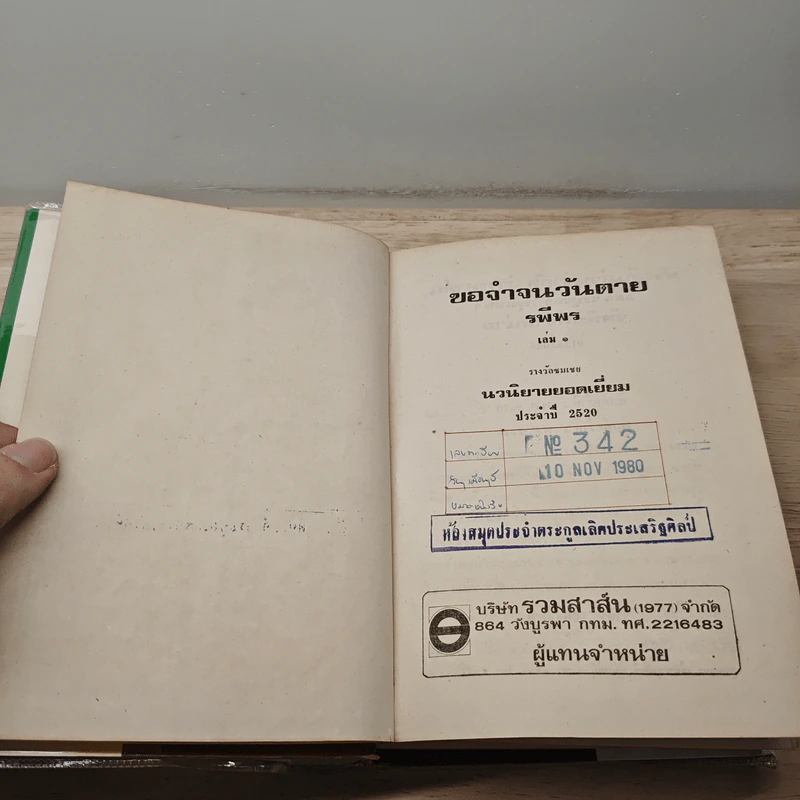 ขอจำจนวันตาย
รพีพร
เล่ม ๑
รางวัลชมเชย
นวนิยายยอดเยี่ยม
ประจำปี 2520
เลขทะเบียน № 342
วัน เดือน ปี 10 NOV 1980
ห้องสมุดประจำตระกูลเลิศประเสริฐศิลป์
บริษัท รวมสาส์น (1977) จำกัด
864 วังบูรพา กทม. ทศ.2216483
ผู้แทนจำหน่าย